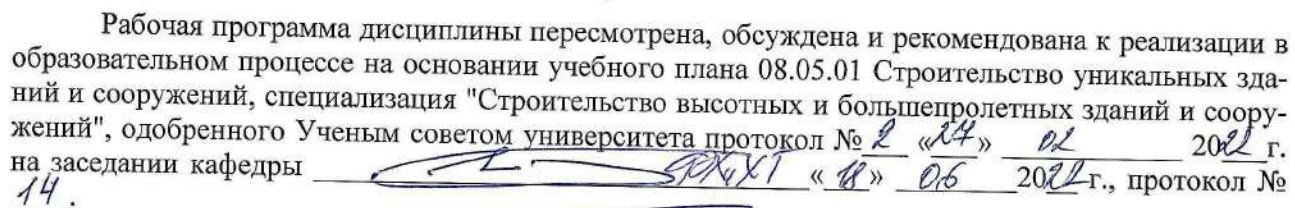 Рабочая программа дисциплины пересмотрена, обсуждена и рекомендована к реализации в
образовательном процессе на основании учебного плана 08.05.01 Строительство уникальных зда-
ний и сооружений, специализация "Строительство высотных и большепролетных зданий и соору-
жений", одобренного Ученым советом университета протокол № 2 «27» 02 2022 г.
на заседании кафедры ФХиХТ «18» 06 2022 г., протокол №
14 .